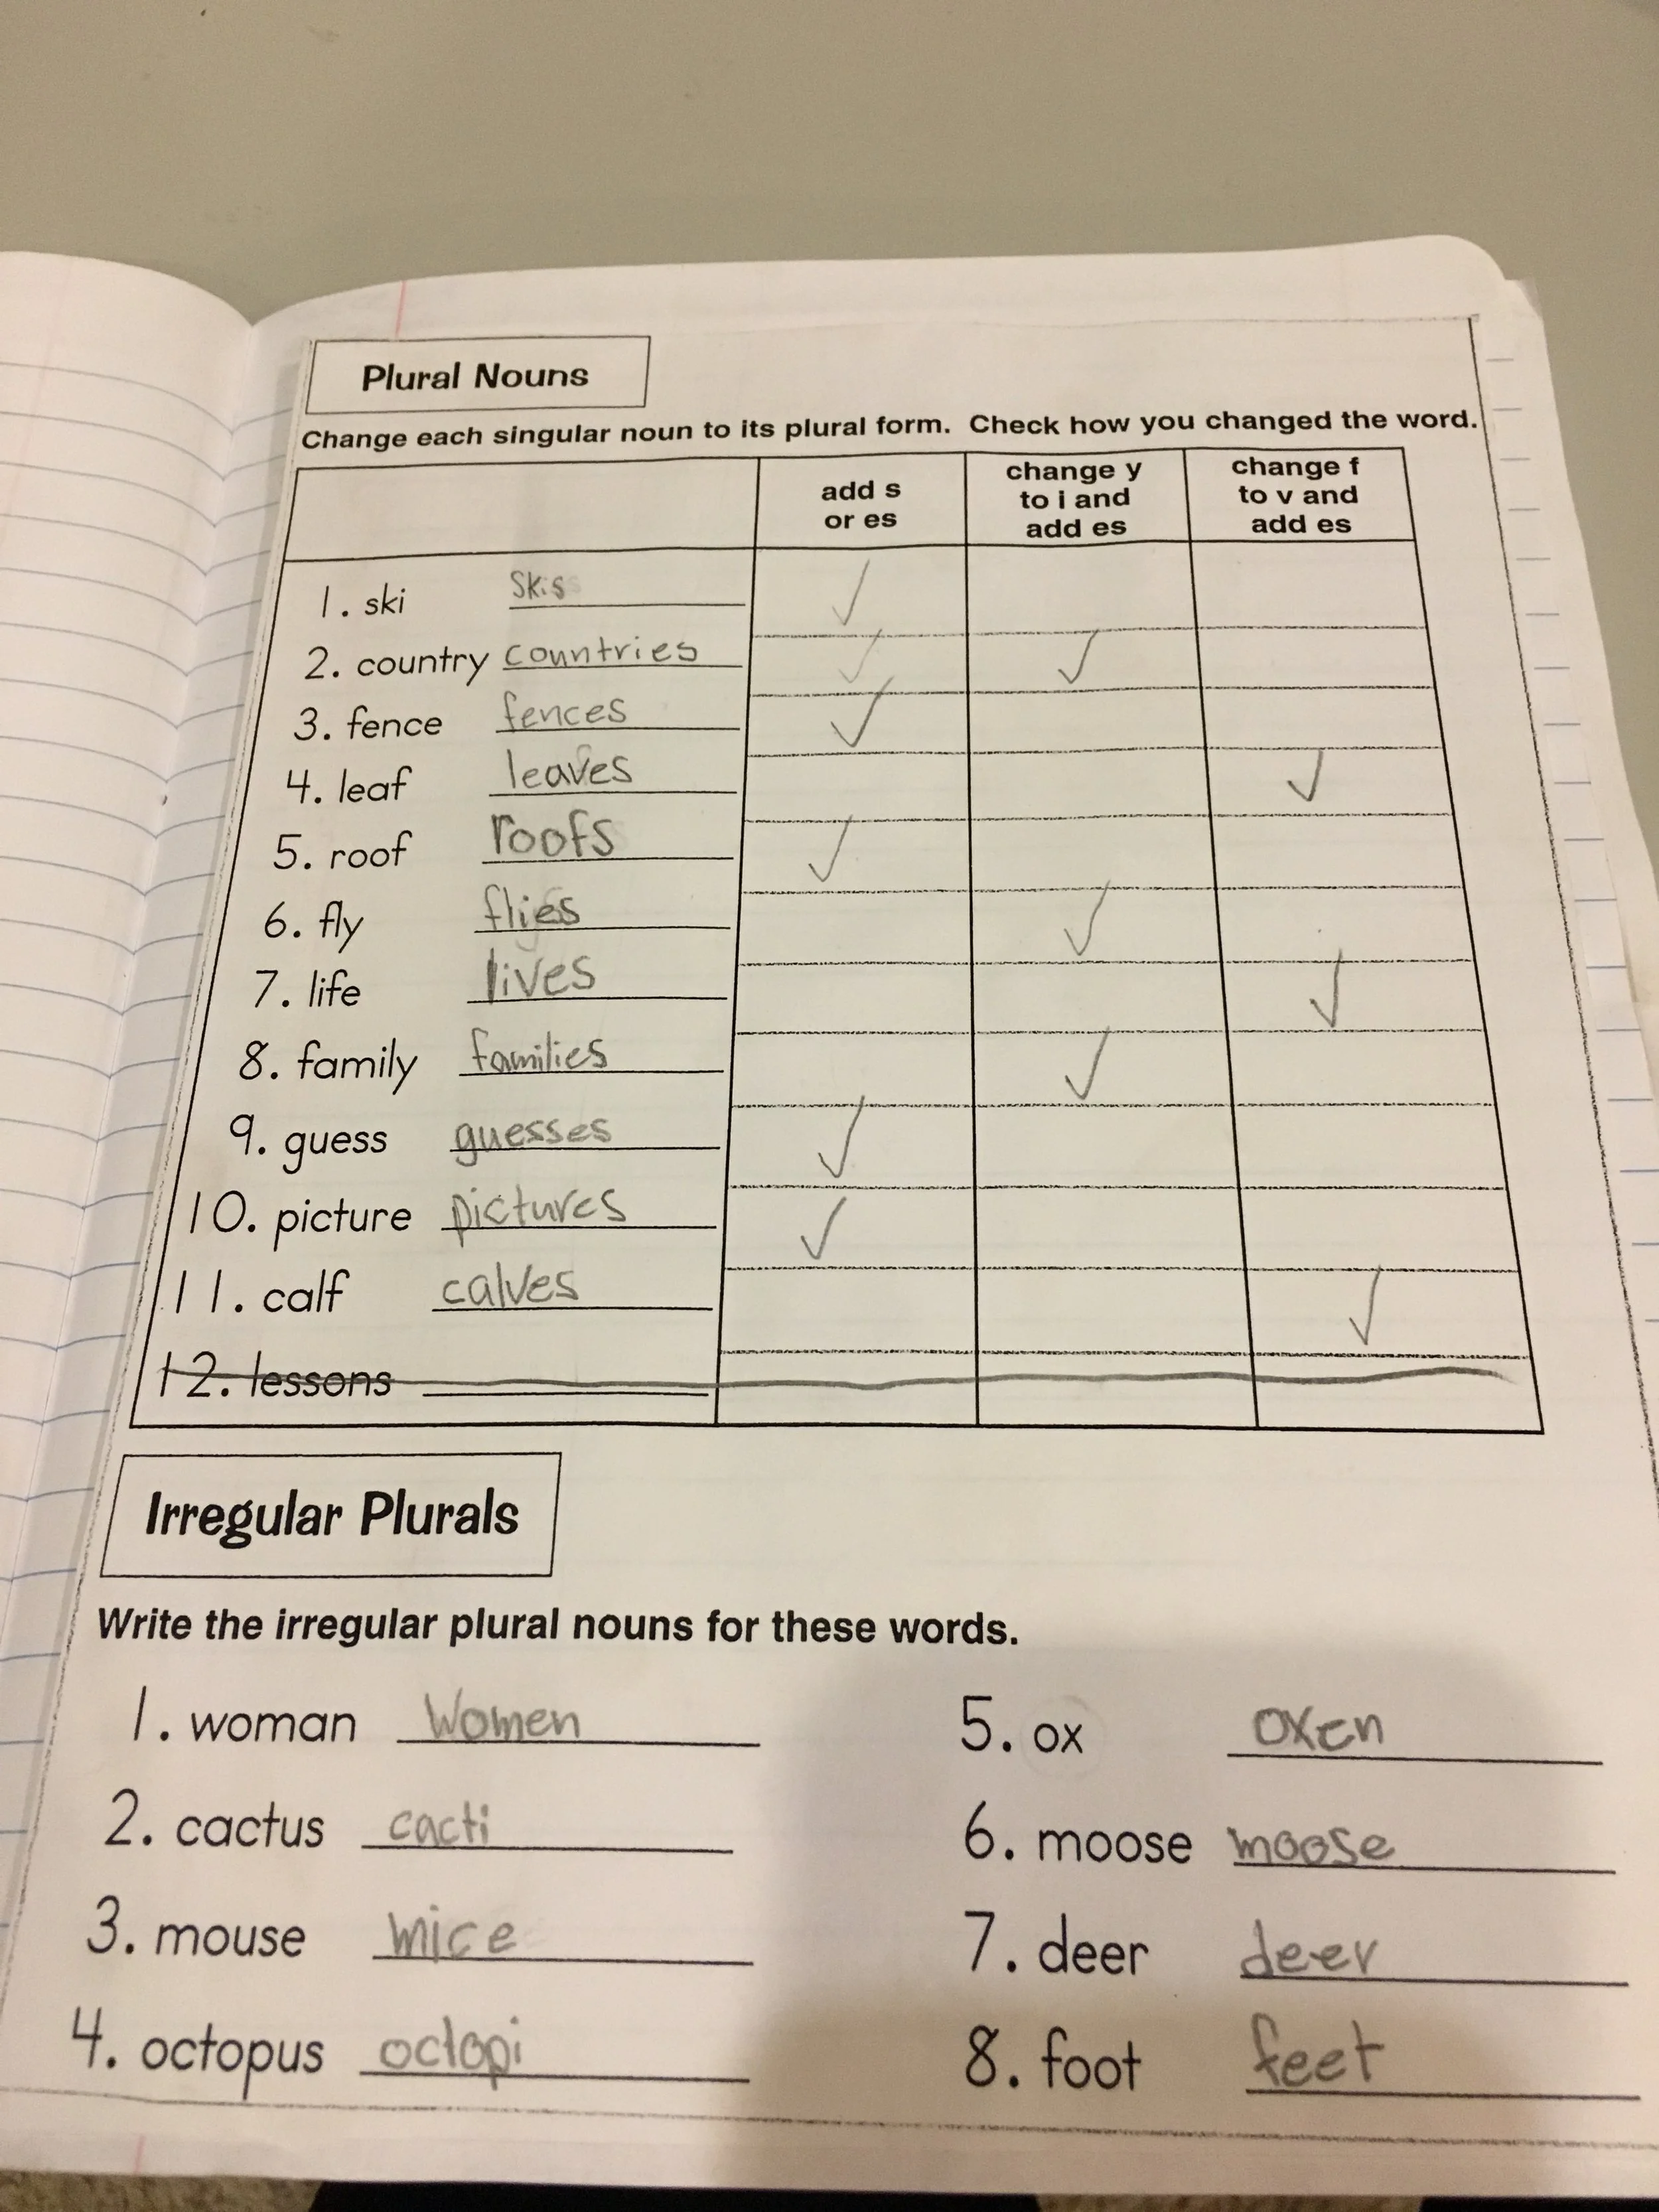 Plural Nouns
Change each singular noun to its plural form. Check how you changed the word.
add s or es
change y to i and add es
change f to v and add es
1. ski skis ✓
2. country countries ✓ ✓
3. fence fences ✓
4. leaf leaves ✓
5. roof roofs ✓
6. fly flies ✓
7. life lives ✓
8. family families ✓
9. guess guesses ✓
10. picture pictures ✓
11. calf calves ✓
12. lessons
Irregular Plurals
Write the irregular plural nouns for these words.
1. woman Women
2. cactus cacti
3. mouse mice
4. octopus octopi
5. ox oxen
6. moose moose
7. deer deer
8. foot feet